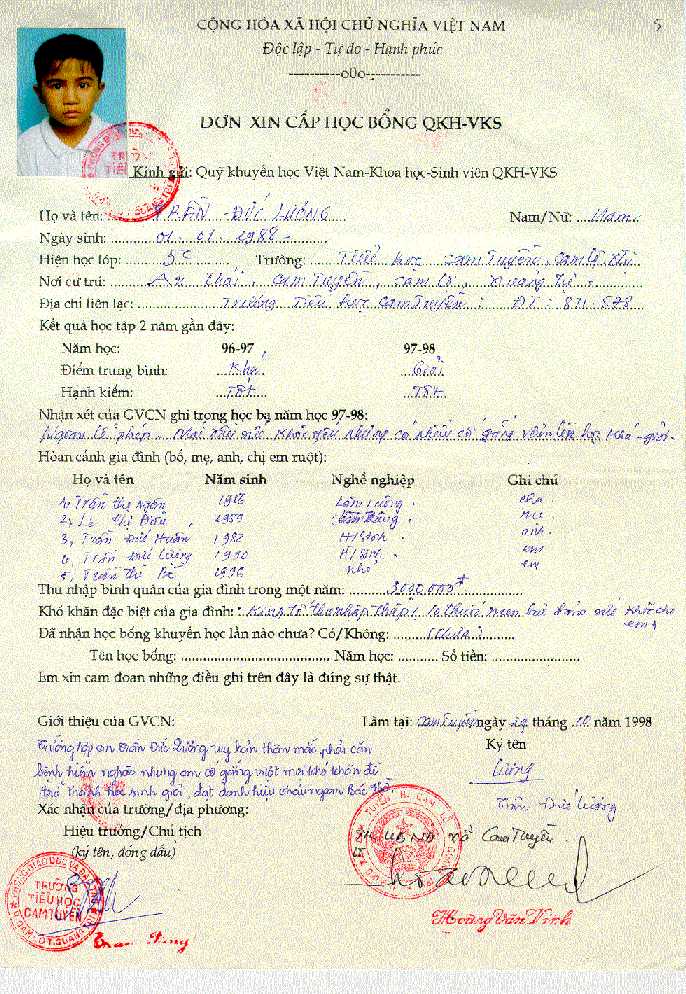 CỘNG HÒA XÃ HỘI CHỦ NGHĨA VIỆT NAM
5
Độc lập - Tự do - Hạnh phúc
-----------o0o-----------
ĐƠN XIN CẤP HỌC BỔNG QKH-VKS
Kính gửi: Quỹ khuyến học Việt Nam-Khoa học-Sinh viên QKH-VKS
Họ và tên: TRẦN ĐỨC LƯƠNG Nam/Nữ: Nam
Ngày sinh: 01.01.1988
Hiện học lớp: 5C Trường: Tiểu học Cam Tuyền, Cam Lộ
Nơi cư trú: An Thái, Cam Tuyền, Cam Lộ, Quảng Trị
Địa chỉ liên lạc: Trường Tiểu học Cam Tuyền: ĐT:
Kết quả học tập 2 năm gần đây:
Năm học: 96-97 97-98
Điểm trung bình: Khá Giỏi
Hạnh kiểm: Tốt Tốt
Nhận xét của GVCN ghi trong học bạ năm học 97-98:
Ngoan lễ phép có nhiều cố gắng vươn lên học khá-giỏi
Hoàn cảnh gia đình (bố, mẹ, anh, chị em ruột):
Họ và tên Năm sinh Nghề nghiệp Ghi chú
1, Trần Thị Làm ruộng cha
2, Lê Thị 1959 Làm ruộng mẹ
3, Trần Đức 1982 H/sinh anh
4, Trần Đức 1990 H/sinh em
5, Trần Thị 1996 Nhỏ em
Thu nhập bình quân của gia đình trong một năm: 3000.000đ
Khó khăn đặc biệt của gia đình: Kinh tế thu nhập thấp,
em
Đã nhận học bổng khuyến học lần nào chưa? Có/Không: Chưa
Tên học bổng: Năm học: Số tiền:
Em xin cam đoan những điều ghi trên đây là đúng sự thật.
Giới thiệu của GVCN: Làm tại: Cam Tuyền ngày 29 tháng 10 năm 1998
Trường lớp em Trần Đức Lương tuy bản thân mắc phải căn Ký tên
bệnh hiểm nghèo nhưng em cố gắng vượt mọi khó khăn để Lương
trở thành học sinh giỏi, đạt danh hiệu cháu ngoan Bác Hồ Trần Đức Lương
Xác nhận của trường/địa phương:
Hiệu trưởng/Chủ tịch TM UBND xã Cam Tuyền
(ký tên, đóng dấu)
TRƯỜNG
TIỂU HỌC
CAM TUYỀN
Hoàng Văn Vinh